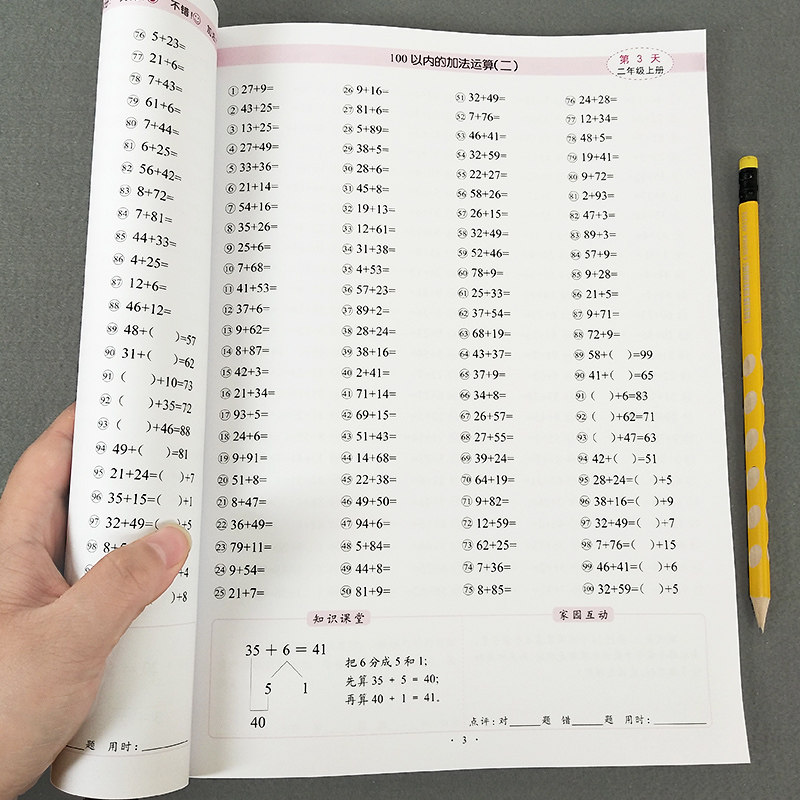 不错!
76 5+23=
77 21+6=
78 7+43=
79 61+6=
80 7+44=
81 6+25=
82 56+42=
83 8+72=
84 7+81=
85 44+33=
86 4+25=
87 12+6=
88 46+12=
89 48+( )=57
90 31+( )=62
91 ( )+10=73
92 ( )+35=72
93 ( )+46=88
94 49+( )=81
95 21+24=( )+7
96 35+15=( )+1
97 32+49=( )+5
98 8+5
+4
)+8
题 用时:
100以内的加法运算(二)
第 3 天
二年级上册
① 27+9=
② 43+25=
③ 13+25=
④ 27+49=
⑤ 33+36=
⑥ 21+14=
⑦ 54+16=
⑧ 35+26=
⑨ 25+6=
⑩ 7+68=
⑪ 41+53=
⑫ 37+6=
⑬ 9+62=
⑭ 8+87=
⑮ 42+3=
⑯ 21+34=
⑰ 93+5=
⑱ 24+6=
⑲ 9+91=
⑳ 51+8=
㉑ 8+47=
㉒ 36+49=
㉓ 79+11=
㉔ 9+54=
㉕ 21+7=
㉖ 9+16=
㉗ 81+6=
㉘ 5+89=
㉙ 38+5=
㉚ 28+6=
㉛ 45+8=
㉜ 19+13=
㉝ 12+61=
㉞ 31+38=
㉟ 4+53=
㊱ 57+23=
㊲ 89+2=
㊳ 28+24=
㊴ 38+16=
㊵ 2+41=
㊶ 71+14=
㊷ 69+15=
㊸ 51+43=
㊹ 14+68=
㊺ 22+38=
㊻ 49+50=
㊼ 94+6=
㊽ 5+84=
㊾ 44+8=
㊿ 81+9=
51 32+49=
52 7+76=
53 46+41=
54 32+59=
55 22+27=
56 58+26=
57 26+15=
58 32+49=
59 52+46=
60 78+9=
61 25+33=
62 37+54=
63 68+19=
64 43+37=
65 37+9=
66 34+8=
67 26+57=
68 27+55=
69 39+24=
70 64+19=
71 9+82=
72 12+59=
73 62+25=
74 7+36=
75 8+85=
76 24+28=
77 12+34=
78 48+5=
79 19+41=
80 9+72=
81 2+93=
82 47+3=
83 89+3=
84 57+9=
85 9+28=
86 21+5=
87 9+71=
88 72+9=
89 58+( )=99
90 41+( )=65
91 ( )+6=83
92 ( )+62=71
93 ( )+47=63
94 42+( )=51
95 28+24=( )+5
96 38+16=( )+9
97 32+49=( )+7
98 7+76=( )+15
99 46+41=( )+6
100 32+59=( )+5
知识课堂
35 + 6 = 41
5 1
40
把6分成5和1;
先算35 + 5 = 40;
再算40 + 1 = 41.
家园互动
点评: 对____题 错____题 用时:____
· 3 ·